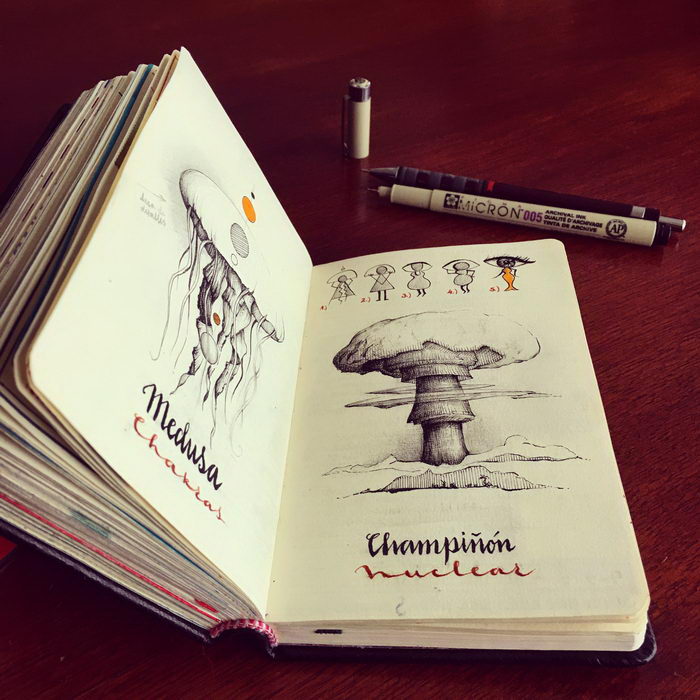 Medusa
Chakras
1.) 2.) 3.) 4.) 5.)
Champiñón
nuclear
MICRON 005
ARCHIVAL INK
QUALITÉ D'ARCHIVAGE
TINTA DE ARCHIVE
AP